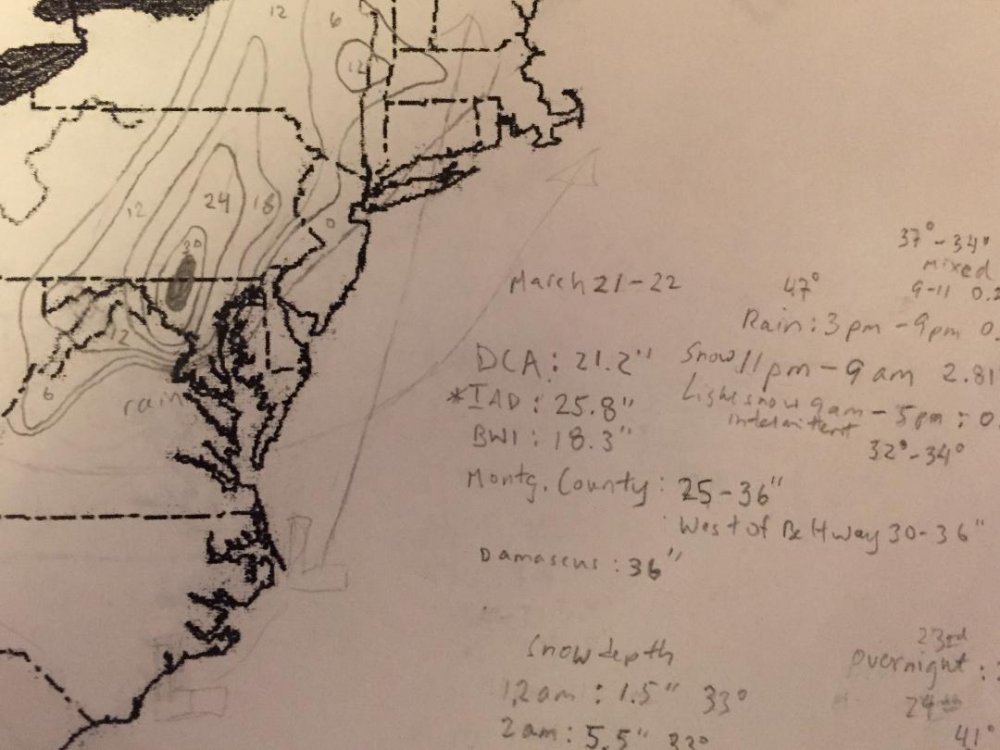 12
6
12
12
24
18
30
0
12
6
rain
March 21-22
47°
37°-34°
Mixed
9-11 0.
Rain: 3pm - 9pm 0.
DCA: 21.2"
Snow 11pm - 9am 2.81
*IAD: 25.8"
Light snow 9am - 5pm: 0.
intermittent
BWI: 18.3"
32°-34°
Montg. County: 25-36"
West of Beltway 30-36"
Damascus: 36"
Snow depth
12am: 1.5" 33°
2am: 5.5" 33°
23rd
overnight:
24th
41°